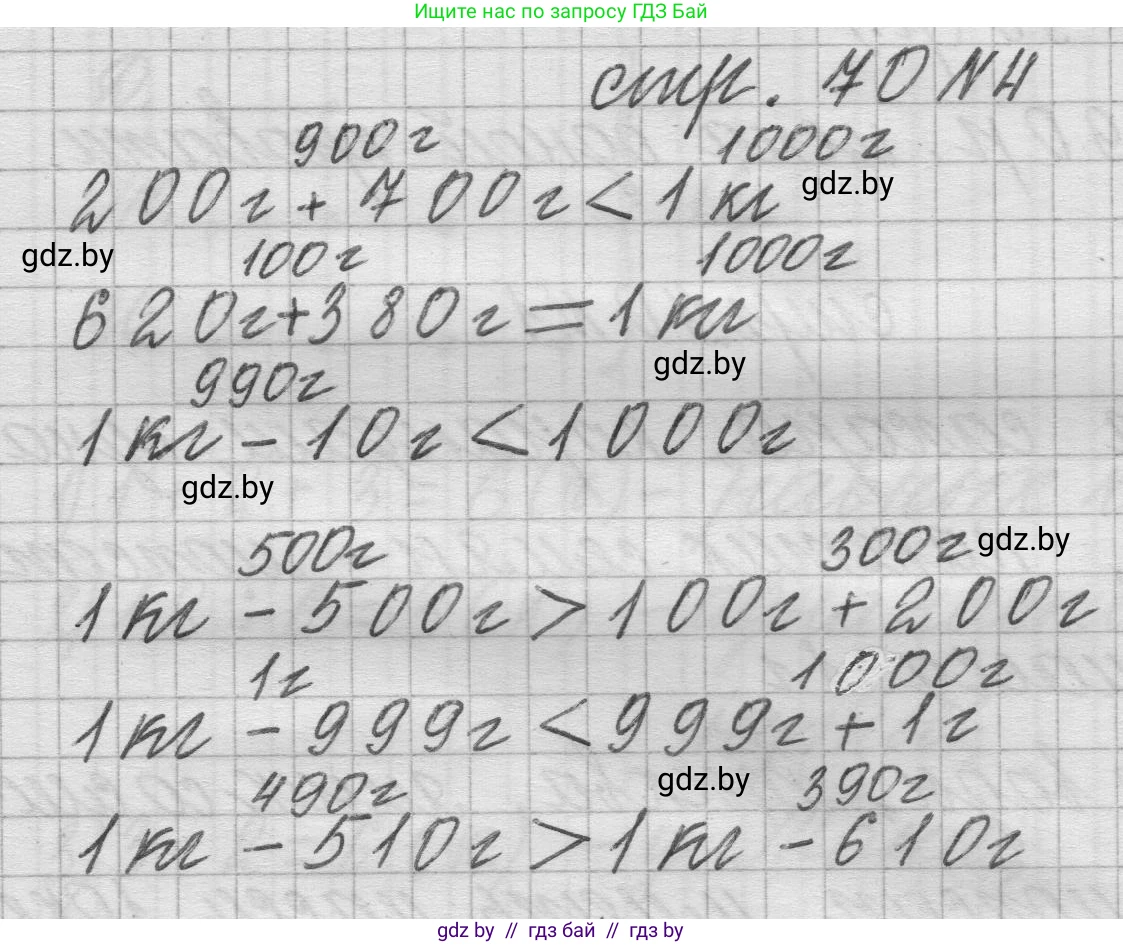 Ищите нас по запросу ГДЗ Бай
стр. 70 N4
900г 1000г
200г + 700г < 1 кг gdz.by
gdz.by 100г 1000г
620г+380г = 1 кг
990г gdz.by
1кг - 10г < 1000г
gdz.by
500г 300г gdz.by
1кг - 500г > 100г + 200г
1г 1000г
1кг - 999г < 999г + 1г
490г gdz.by 390г
1кг - 510г > 1кг - 610г
gdz by // гдз бай // гдз by